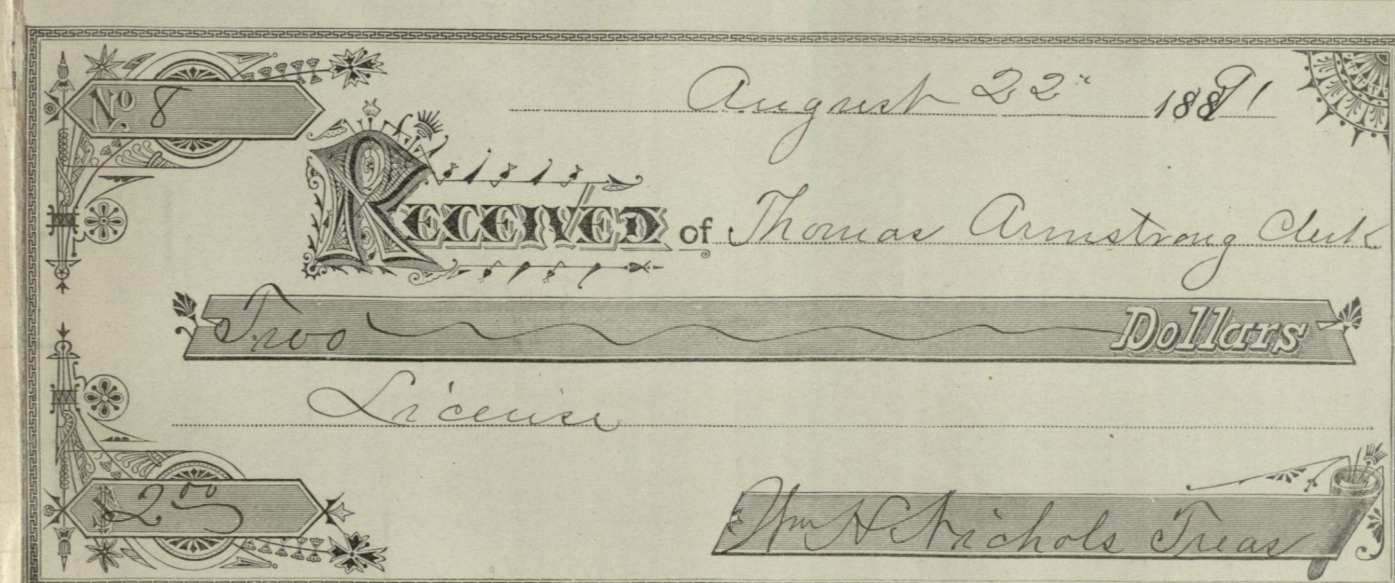 No. 8
August 22" 1891
Received of Thomas Armstrong Clerk
Two Dollars
License
$2.00
Wm H Nichols Treas